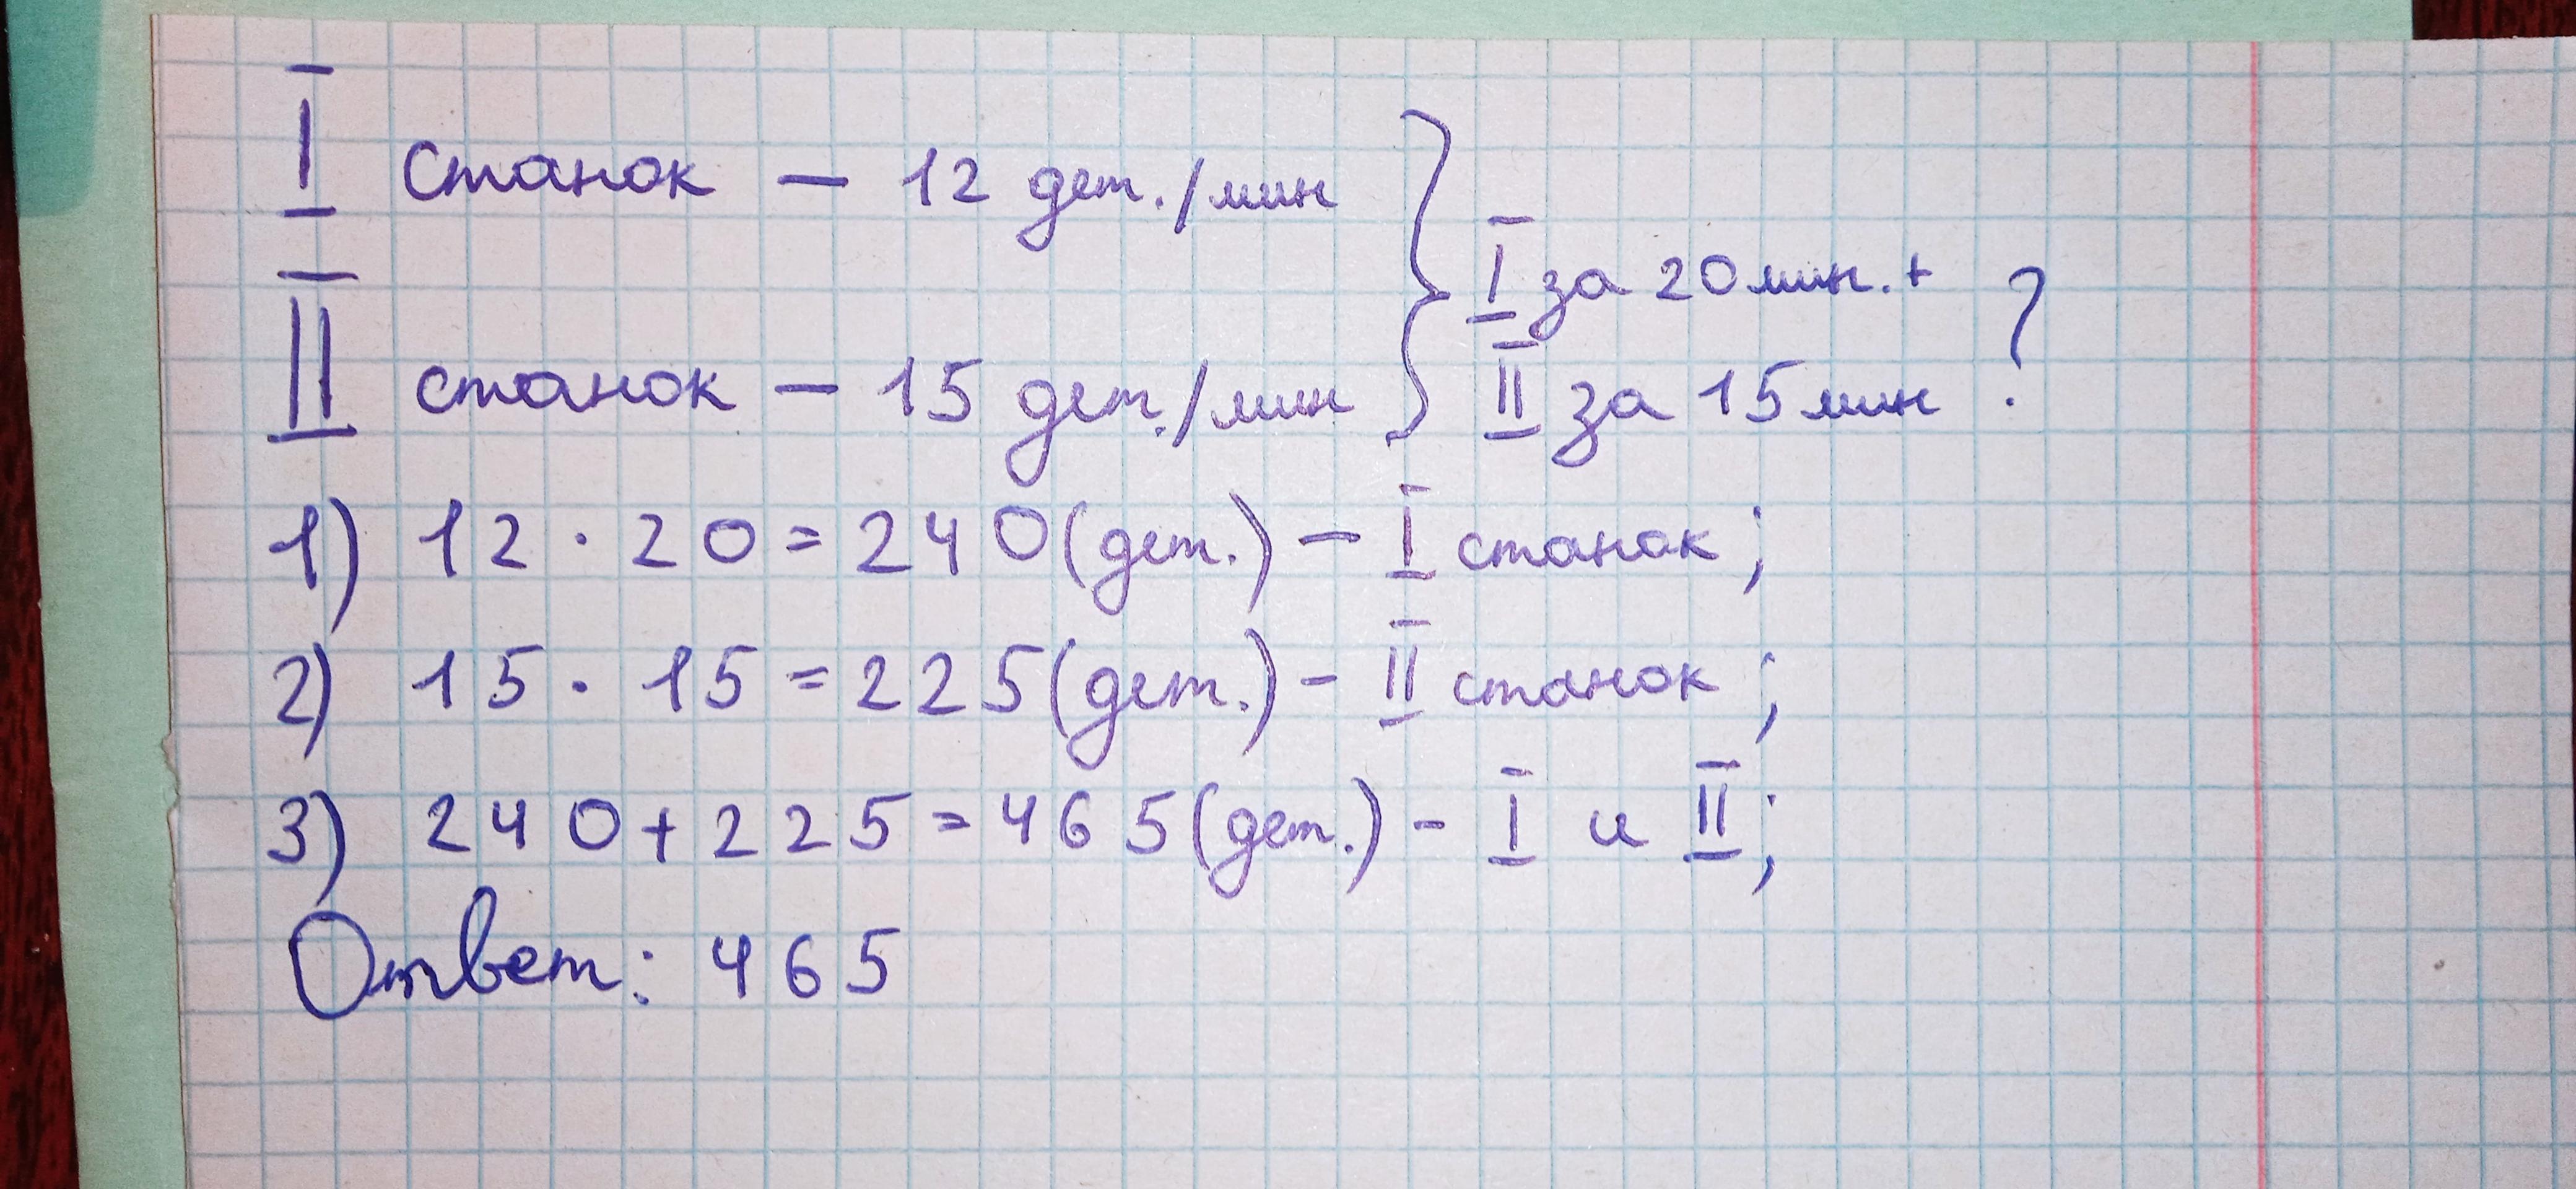 I станок – 12 дет./мин
I за 20 мин. +
II станок – 15 дет./мин
II за 15 мин ?
1) 12 · 20 = 240 (дет.) – I станок;
2) 15 · 15 = 225 (дет.) – II станок;
3) 240 + 225 = 465 (дет.) – I и II;
Ответ: 465